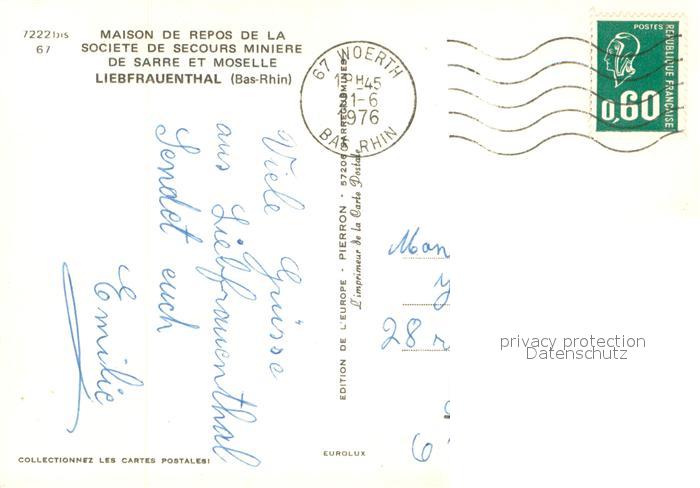 7222bis
67
MAISON DE REPOS DE LA
SOCIETE DE SECOURS MINIERE
DE SARRE ET MOSELLE
LIEBFRAUENTHAL (Bas-Rhin)
67 WOERTH
45
1-6
1976
BAS RHIN
POSTES
REPUBLIQUE FRANÇAISE
0,60
Viele Grüsse
aus Liebfrauenthal
Sendet euch
Emilie
EDITION DE L'EUROPE - PIERRON - 57206 SARREGUEMINES
L'imprimeur de la Carte Postale
28
6
privacy protection
Datenschutz
COLLECTIONNEZ LES CARTES POSTALES!
EUROLUX